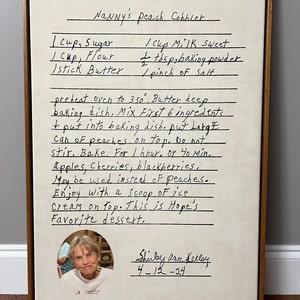 Nanny's Peach Cobbler
1 Cup, Sugar 1 Cup Milk sweet
1 Cup, Flour 1/2 tbsp, baking powder
1 stick Butter 1 pinch of salt
preheat oven to 350°. Butter deep
baking dish. Mix First 6 ingredients
+ put into baking dish. put Large
can of peaches on top. Do not
stir. Bake. For 1 hour, or 40 min.
Apples, cherries, blackberries,
May be used instead of peaches.
Enjoy with a scoop of ice
cream on top. This is Hope's
Favorite dessert.
Shirley Ann Kelley
4-12-24